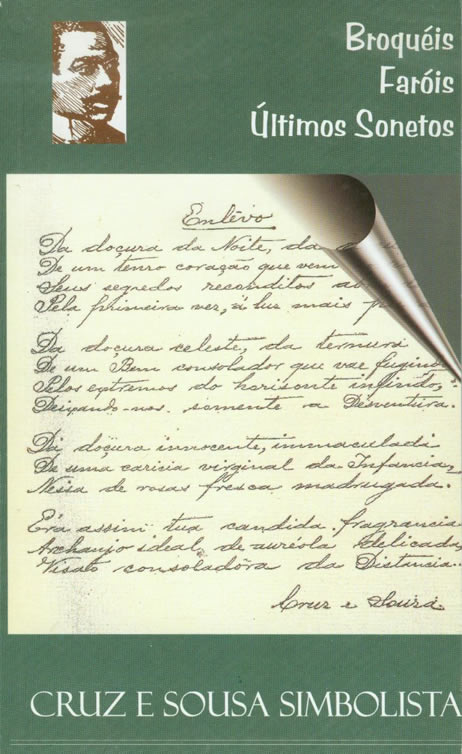 Broquéis
Faróis
Últimos Sonetos
Enlêvo
Da doçura da Noite, da
De um tenro coração que vem
Seus segredos reconditos
Pela primeira vez, á luz mais
Da doçura celeste, da ternura
De um Bem consolador que vae fugindo
Pelos extremos do horisonte infindo,
Deixando-nos somente a Desventura.
Da doçura innocente, immaculada
De uma caricia virginal da Infancia,
Nessa de rosas fresca madrugada.
Era assim tua candida fragrancia
Archanjo ideal de auréola delicada,
Visão consoladôra da Distancia..
Cruz e Souza.
CRUZ E SOUSA SIMBOLISTA